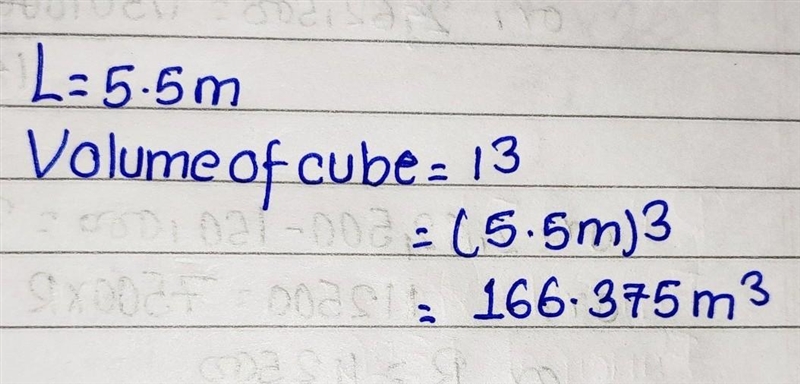 L = 5.5m
Volume of cube = l3
= (5.5m)3
= 166.375 m³